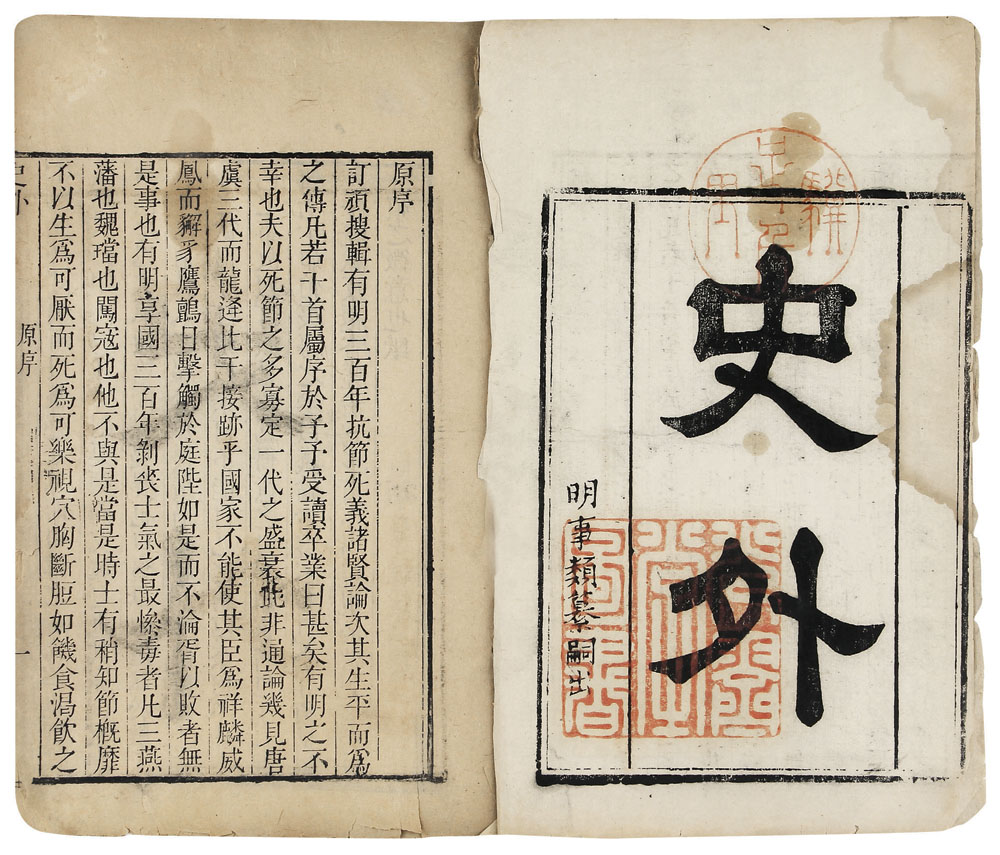 史外
明事類纂嗣出
原序
訂頑搜輯有明三百年抗節死義諸賢論次其生平而爲
之傳凡若十首屬序於予予受讀卒業曰甚矣有明之不
幸也夫以死節之多寡定一代之盛衰此非通論幾見唐
虞三代而龍逄比干接跡乎國家不能使其臣爲祥麟威
鳳而獬豸鷹鸇日擊觸於庭陛如是而不淪胥以敗者無
是事也有明享國三百年剝喪士氣之最慘毒者凡三燕
藩也魏璫也闖寇也他不與是當是時士有稍知節概靡
不以生爲可厭而死爲可樂視穴胸斷脰如饑食渴飲之
史外
原序
一